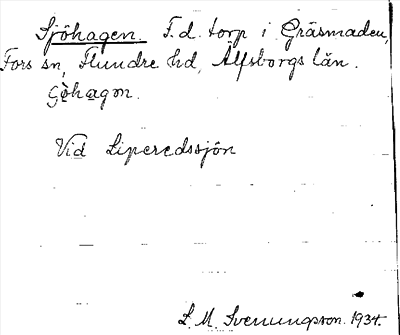 Sjöhagen. F.d. torp i Gräsmaden,
Fors sn, Flundre hd, Älfsborgs län.
Vid Liperedssjön
S. M. Svenungsson. 1934.